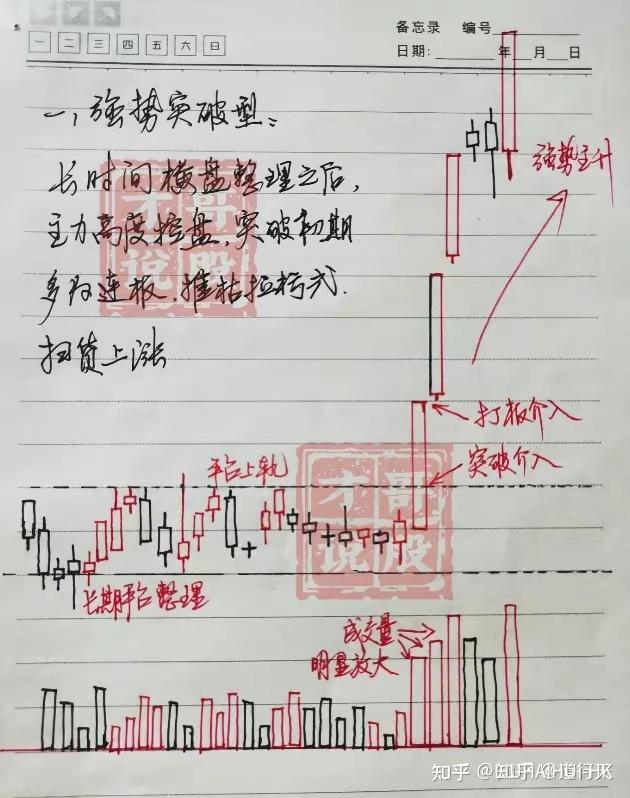 备忘录 编号
一 二 三 四 五 六 日
日期: 年 月 日
一，强势突破型：
长时间横盘整理之后，
主力高度控盘，突破初期
多为连板，推枯拉朽式
扫货上涨
强势主升
打板介入
突破介入
平台上轨
长期平台整理
成交量
明显放大
才哥
说股
才哥
说股
知乎